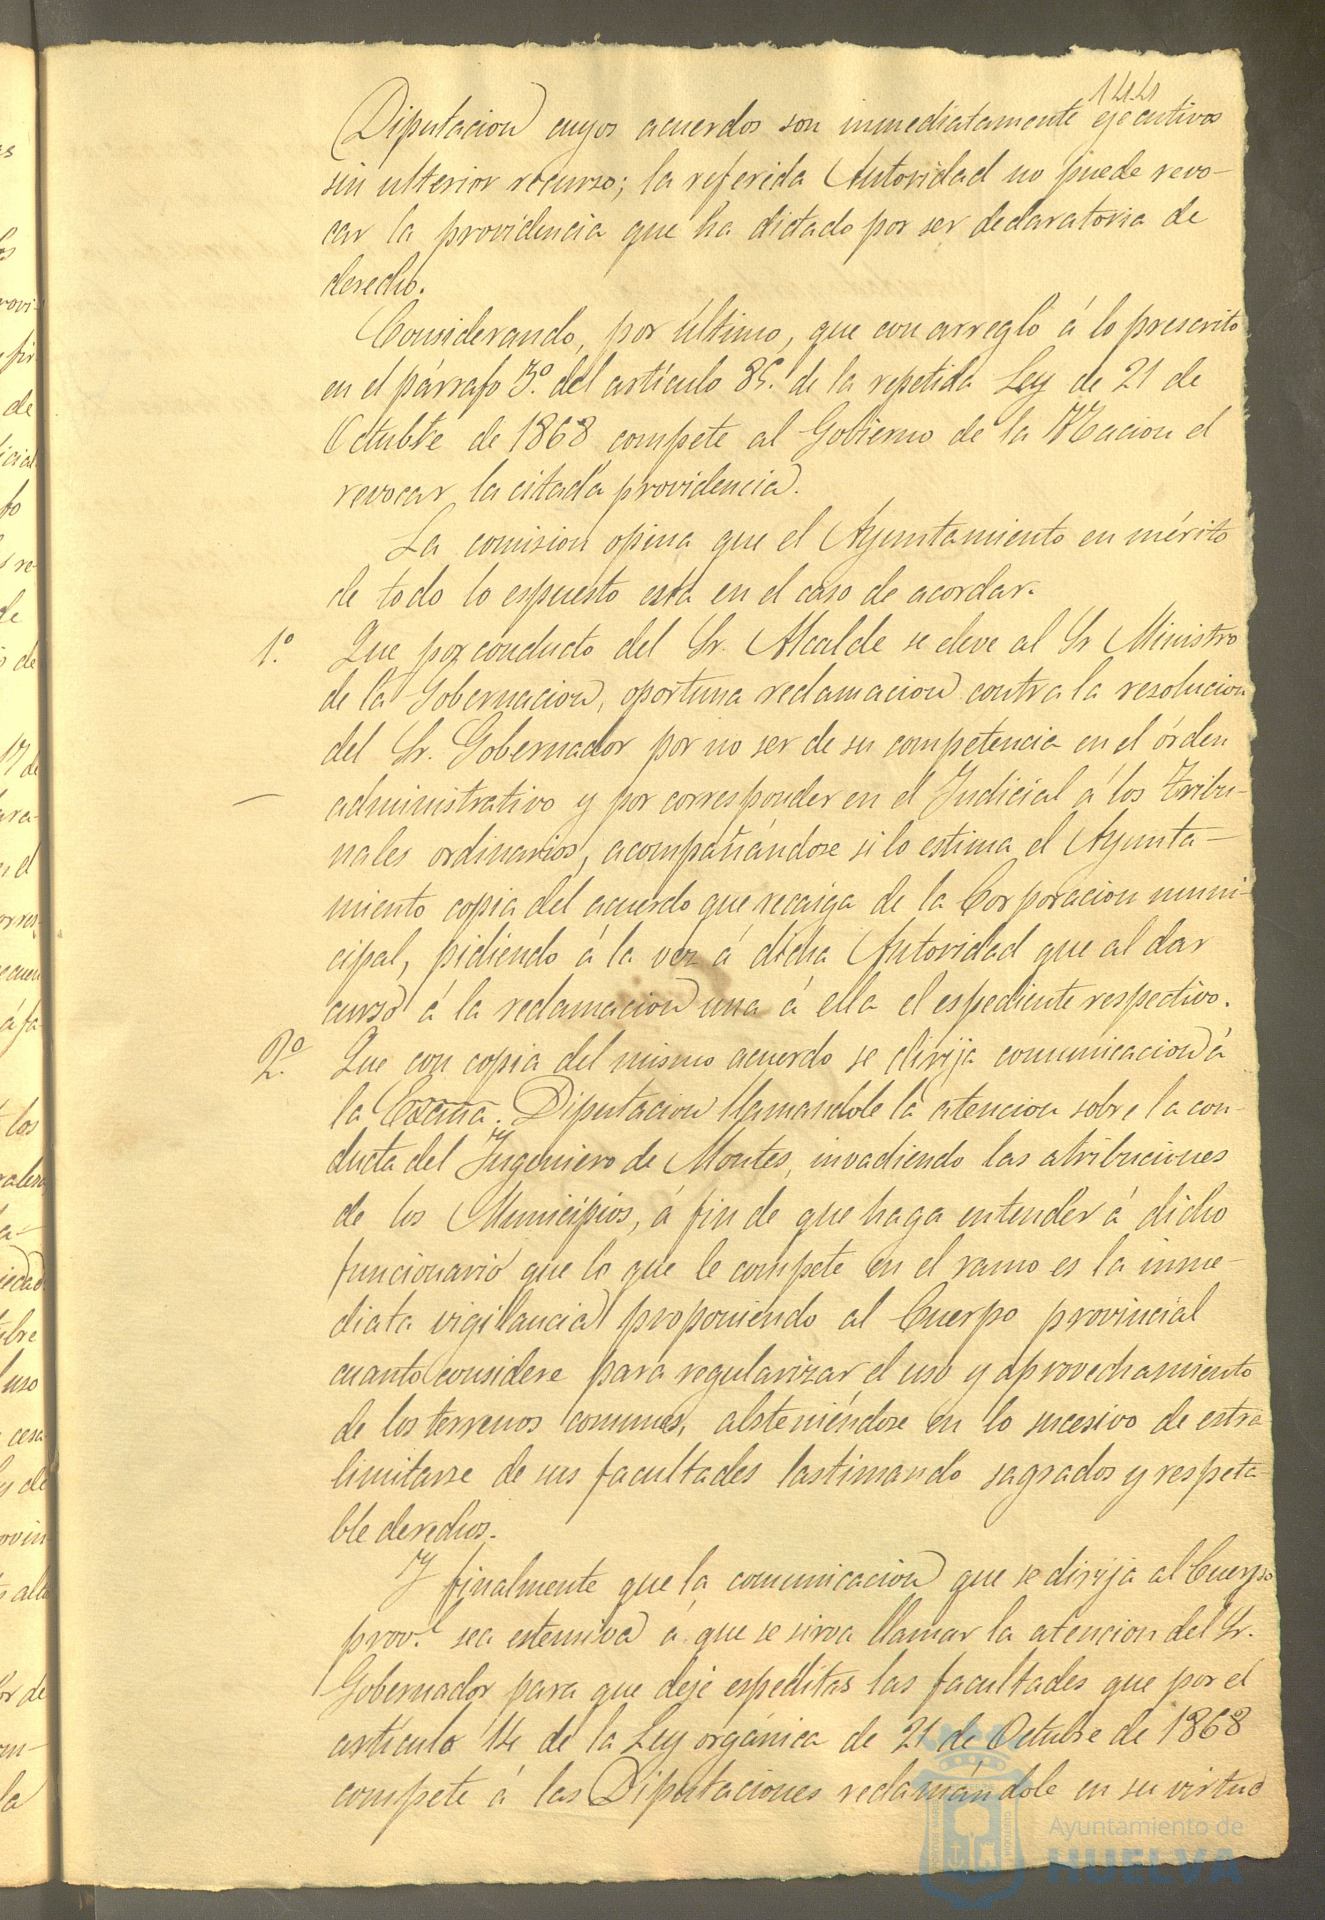 144
Diputacion cuyos acuerdos son inmediatamente ejecutivos
sin ulterior recurso; la referida Autoridad no puede revo-
car la providencia que ha dictado por ser declaratoria de
derecho.
Considerando, por último, que con arreglo á lo prescrito
en el párrafo 3º. del artículo 85. de la repetida Ley de 21 de
Octubre de 1868 compete al Gobierno de la Nacion el
revocar la citada providencia.
La comision opina que el Ayuntamiento en mérito
de todo lo espuesto está en el caso de acordar.
1º. Que por conducto del Sr. Alcalde se eleve al Sr Ministro
de la Gobernacion, oportuna reclamacion contra la resolucion
del Sr. Gobernador por no ser de su competencia en el órden
administrativo y por corresponder en el Judicial á los Tribu-
nales ordinarios, acompañándose si lo estima el Ayunta-
miento copia del acuerdo que recaiga de la Corporacion muni-
cipal, pidiendo á la vez á dicha Autoridad que al dar
curso á la reclamacion una á ella el espediente respectivo.
2º. Que con copia del mismo acuerdo se dirija comunicacion á
la Excma. Diputacion llamandole la atencion sobre la con-
ducta del Ingeniero de Montes, invadiendo las atribuciones
de los Municipios, á fin de que haga entender á dicho
funcionario que lo que le compete en el ramo es la inme-
diata vigilancia proponiendo al Cuerpo provincial
cuanto considere para regularizar el uso y aprovechamiento
de los terrenos comunes, absteniéndose en lo sucesivo de estra
limitarse de sus facultades lastimando sagrados y respeta-
ble derechos.
Y finalmente que la comunicacion que se dirija al Cuerpo
provl. sea estensiva á que se sirva llamar la atencion del Sr.
Gobernador para que deje espeditas las facultades que por el
artículo 14 de la Ley orgánica de 21 de Octubre de 1868
compete á las Diputaciones reclamándole en su virtud
Ayuntamiento de
HUELVA